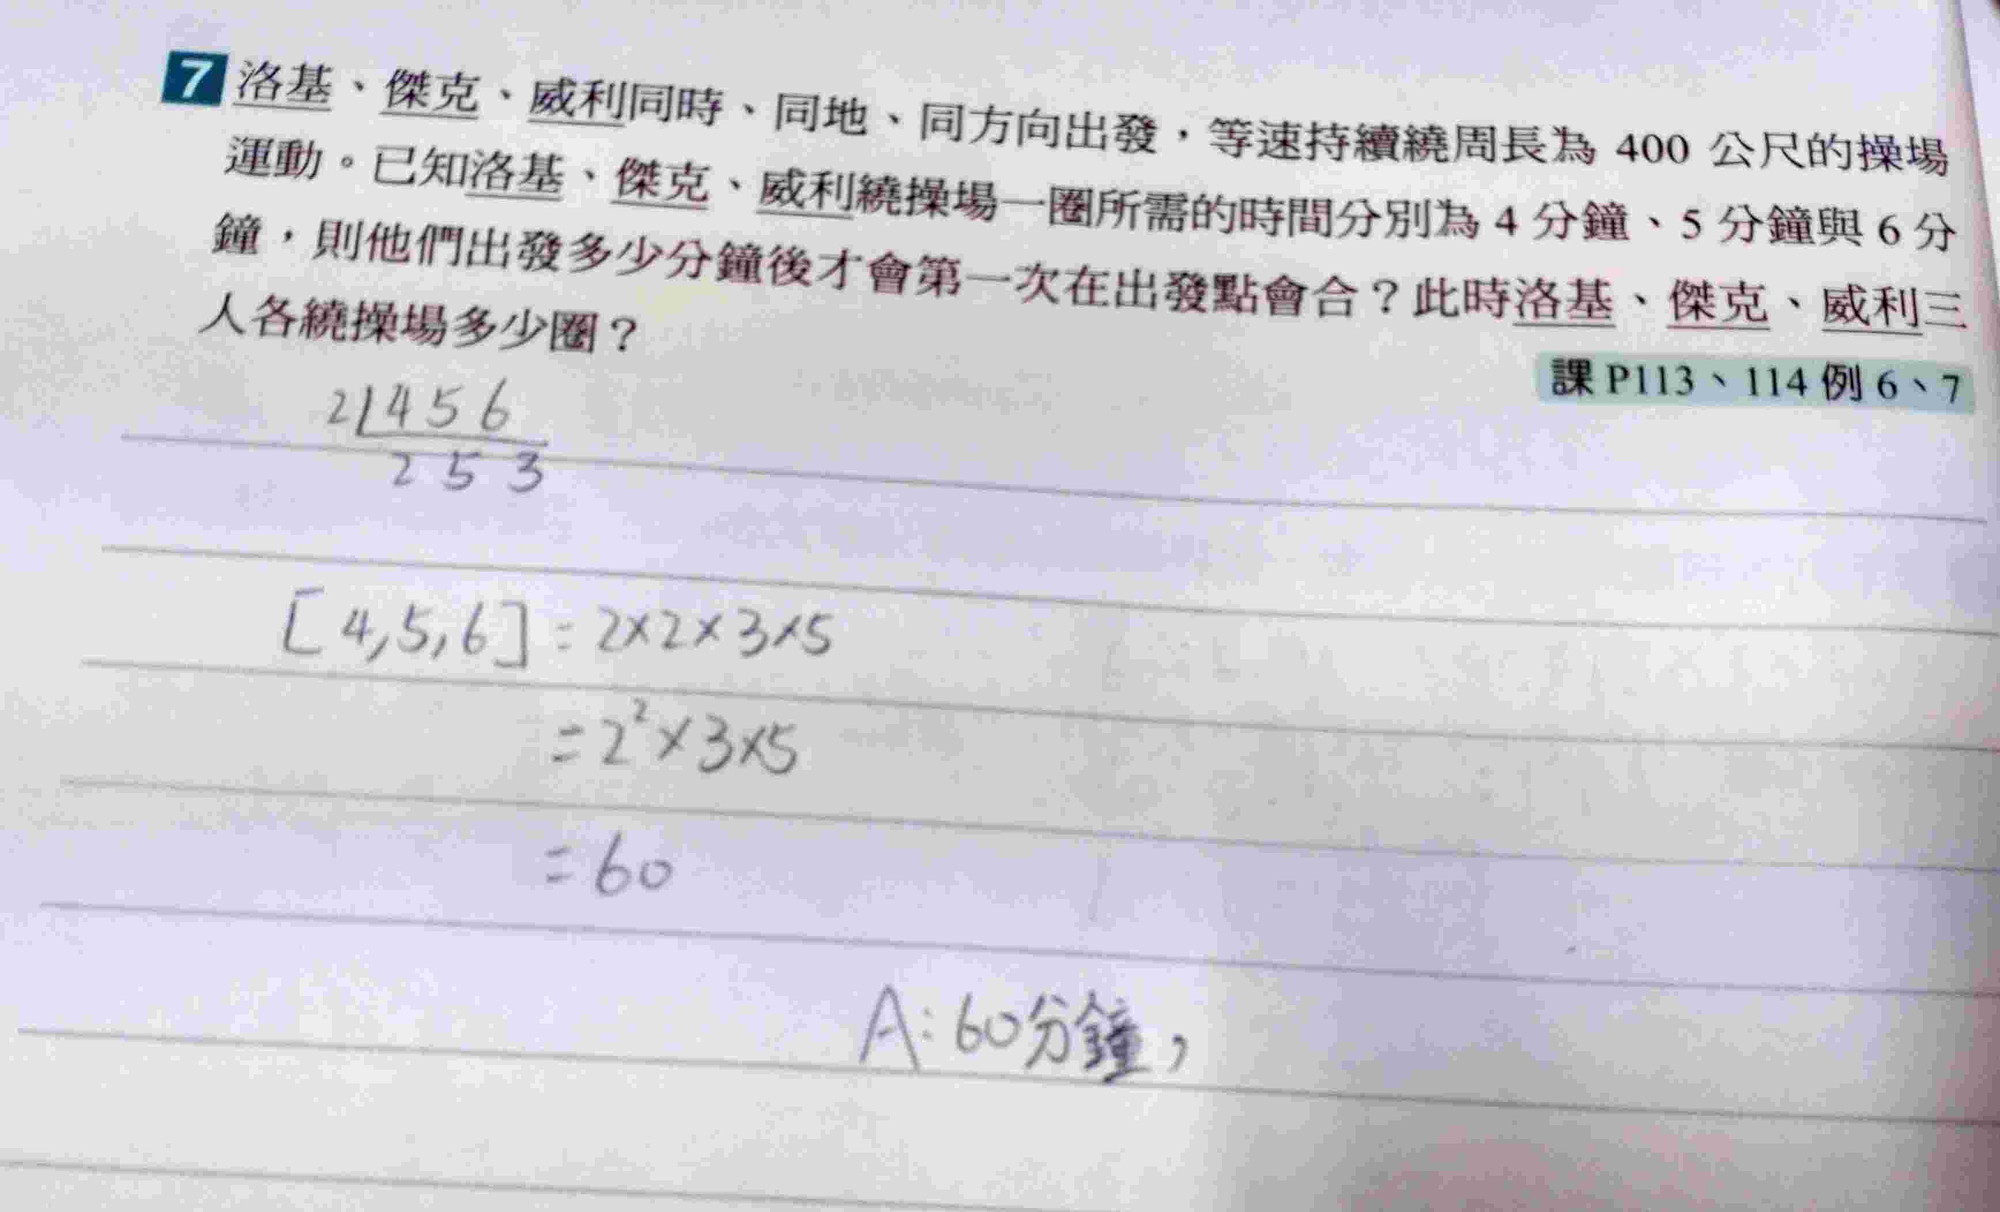 7 洛基、傑克、威利同時、同地、同方向出發，等速持續繞周長為 400 公尺的操場
運動。已知洛基、傑克、威利繞操場一圈所需的時間分別為 4 分鐘、5 分鐘與 6 分
鐘，則他們出發多少分鐘後才會第一次在出發點會合？此時洛基、傑克、威利三
人各繞操場多少圈？
課 P113、114 例 6、7
2 4 5 6
2 5 3
[4,5,6]=2×2×3×5
=2²×3×5
=60
A:60分鐘，